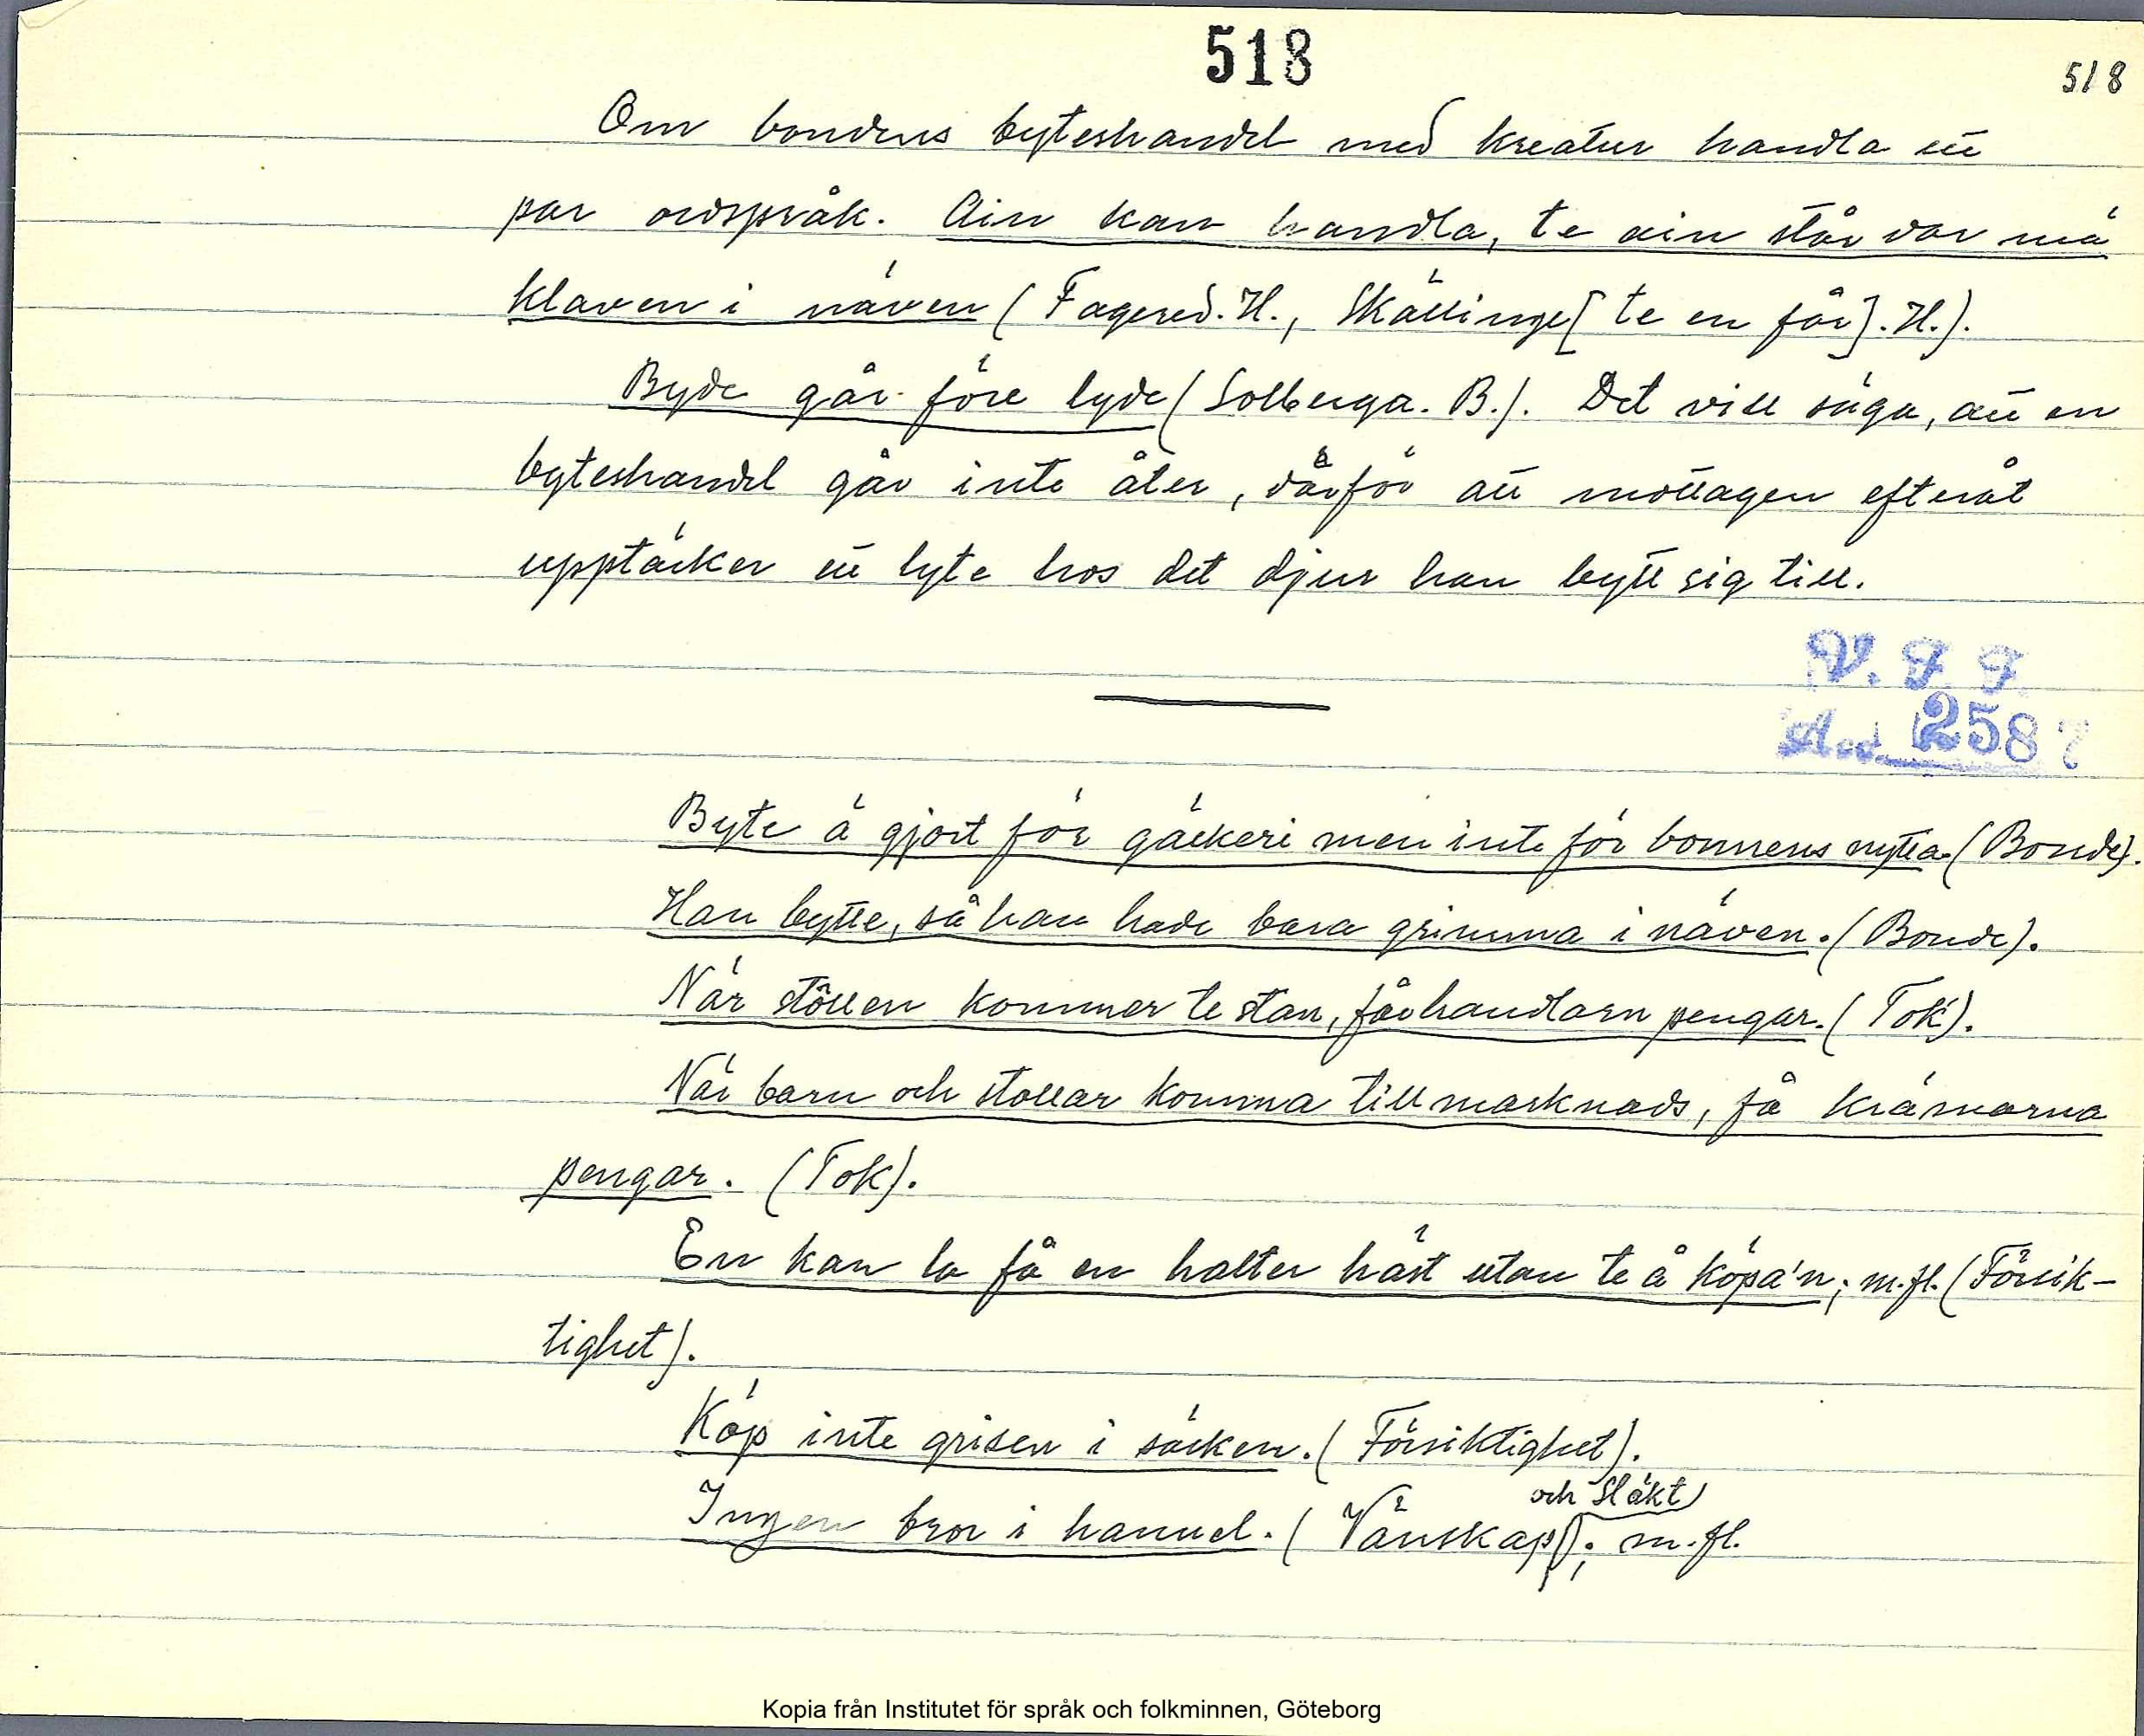 518
518
Om bondens byteshandel med kreatur handla ett
par ordspråk. Ain kan handla, te ain står dar mä
klaven i näven (Fagered. H., Skällinge [te en får]. H.).
Byde går före lyde (Solberga. B.). Det vill säga, att en
byteshandel går inte åter, därför att mottagen efteråt
upptäcker ett lyte hos det djur han bytt sig till.
V. F. F.
Acc. 2587
Byte ä gjort för gäckeri men inte för bonnens nytta. (Bonde).
Han bytte, så han hade bara grimma i näven. (Bonde).
När stollen kommer te stan, får handlarn pengar. (Tok).
När barn och stollar komma till marknads, få krämarna
pengar. (Tok).
En kan la få en halter häst utan te å köpa'n; m.fl. (Försik-
tighet).
Köp inte grisen i säcken. (Försiktighet).
och Släkt
Ingen bror i hannel. (Vänskap); m.fl.
Kopia från Institutet för språk och folkminnen, Göteborg